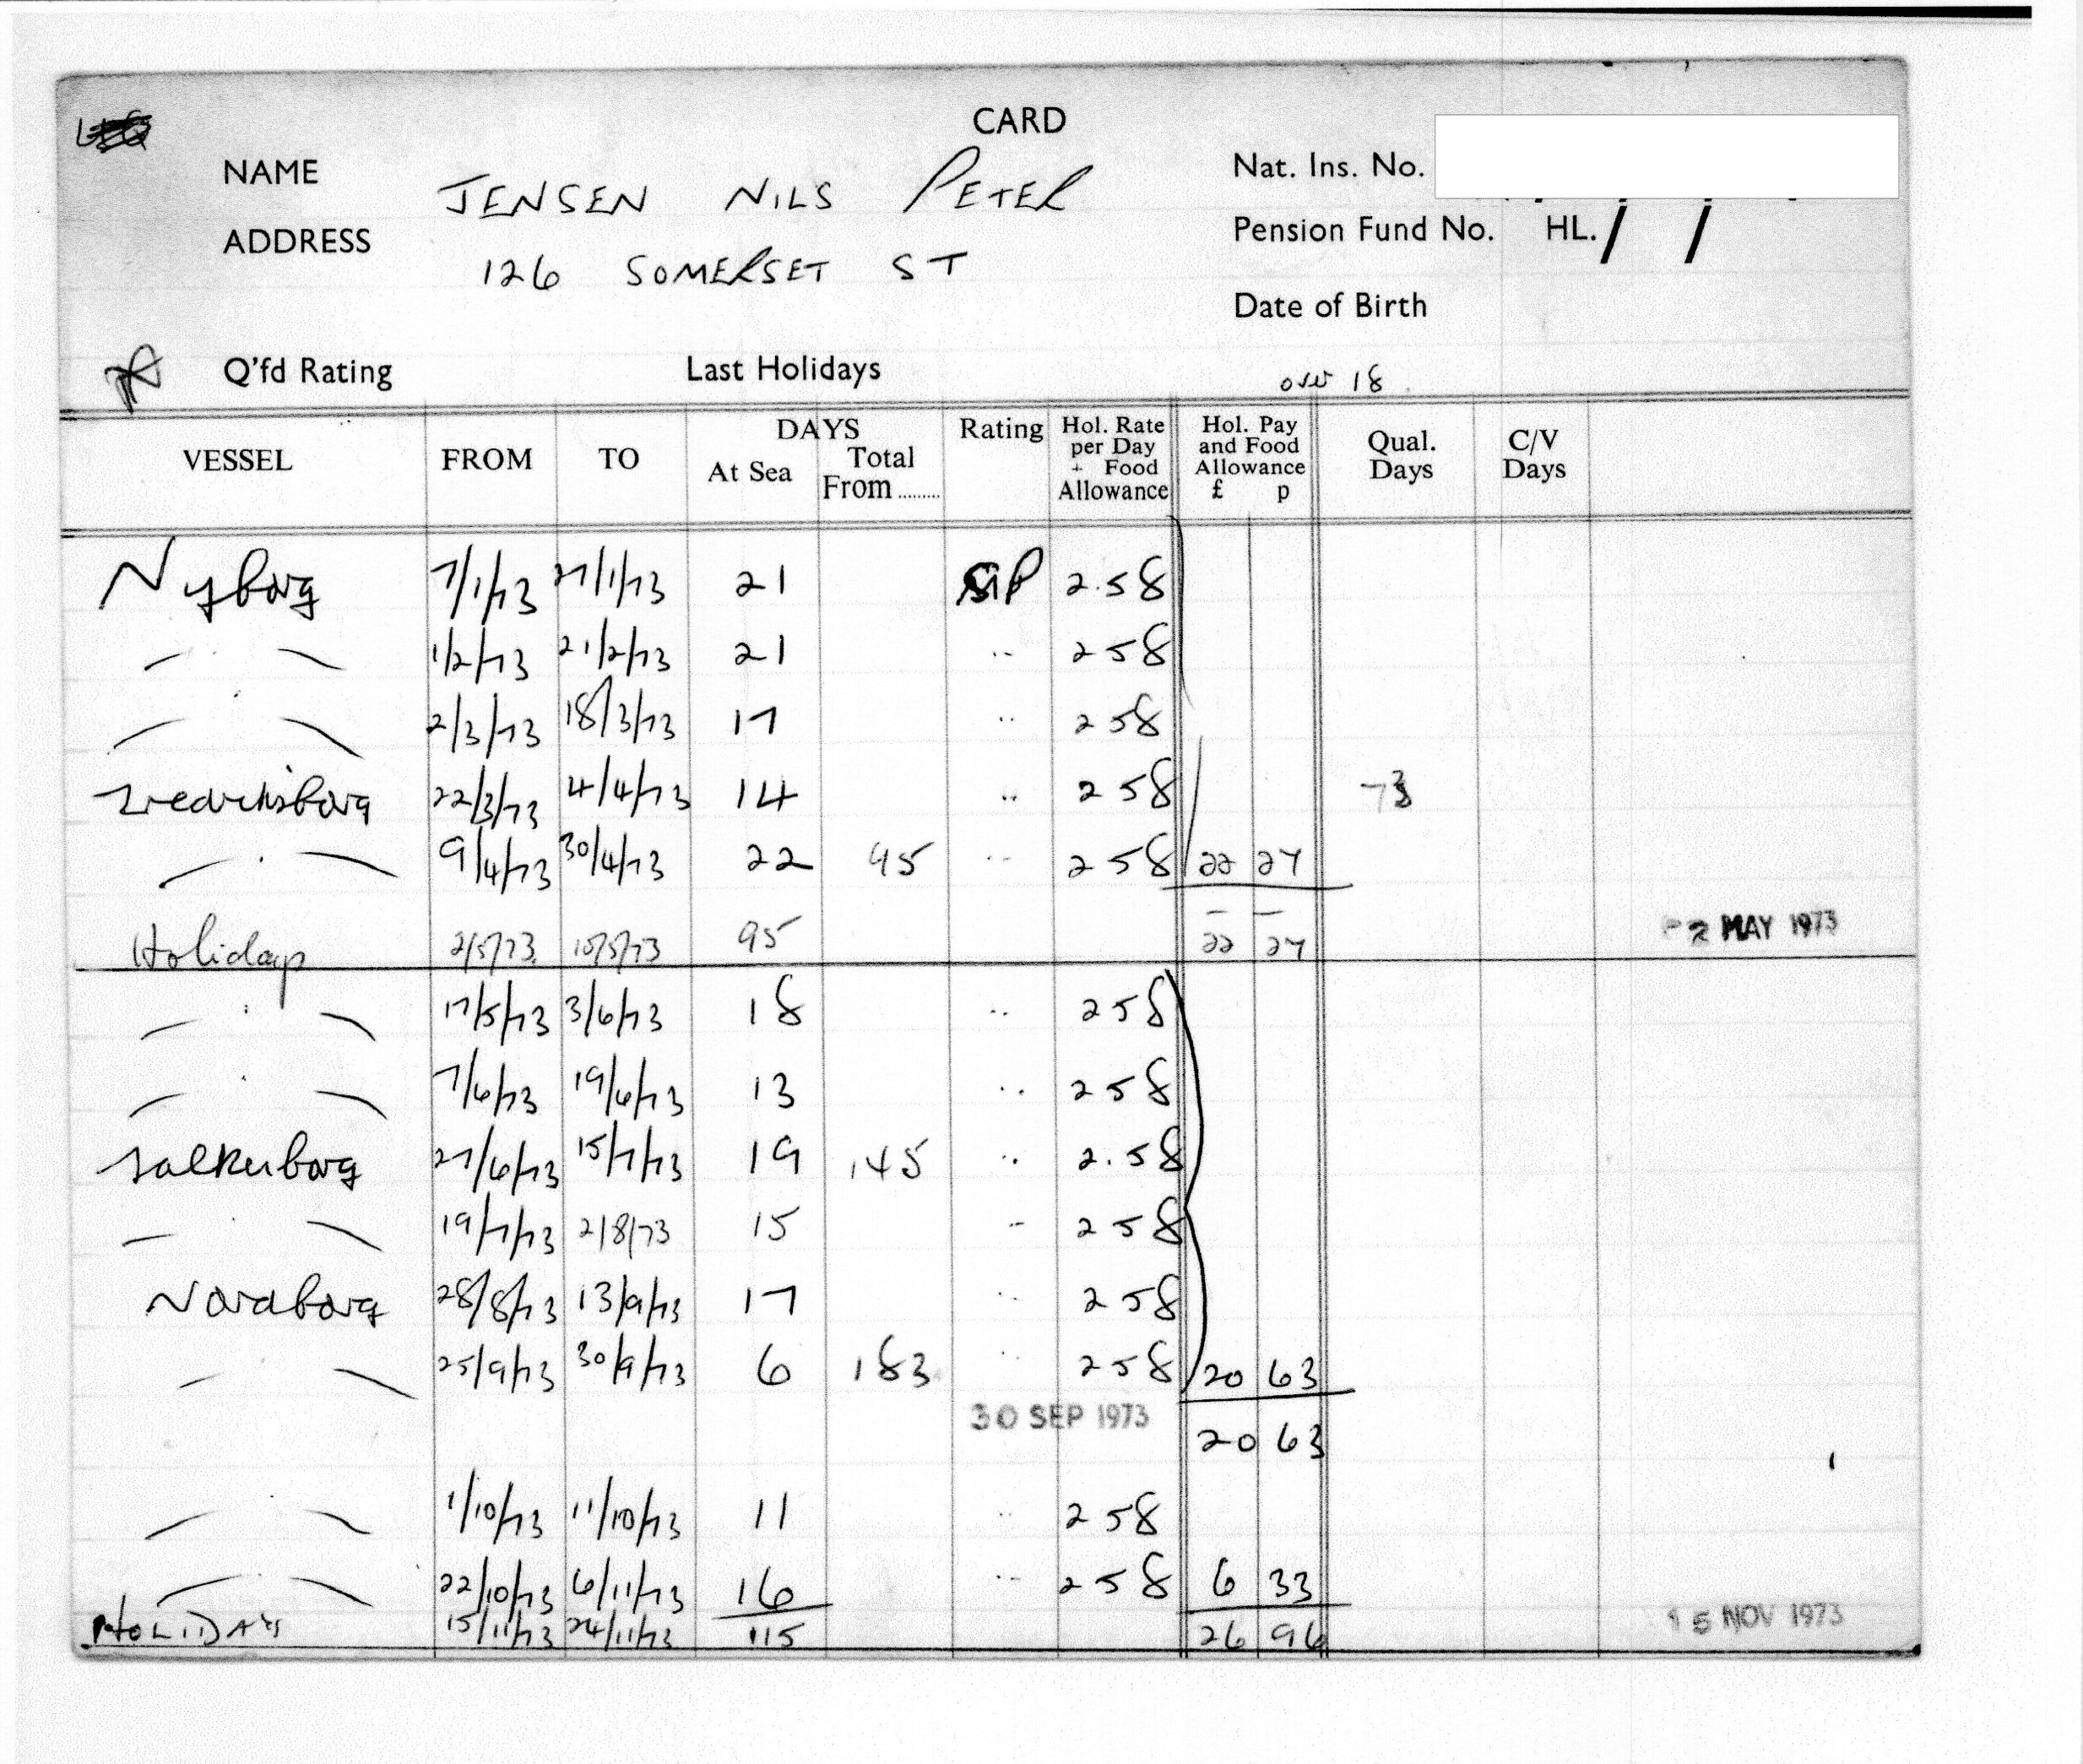 CARD
NAME JENSEN NILS PETER Nat. Ins. No.
ADDRESS 126 SOMERSET ST Pension Fund No. HL. / /
Date of Birth
Q'fd Rating Last Holidays over 18
VESSEL FROM TO DAYS At Sea Total From ......... Rating Hol. Rate per Day + Food Allowance Hol. Pay and Food Allowance £ p Qual. Days C/V Days
Nyborg 7/1/73 27/1/73 21 2.58
1/2/73 21/2/73 21 " 2 58
2/3/73 18/3/73 17 " 2 58
Fredriksborg 22/3/73 4/4/73 14 " 2 58 73
9/4/73 30/4/73 22 95 " 2 58 22 27
Holidays 2/5/73 10/5/73 95 22 27 2 MAY 1973
17/5/73 3/6/73 18 " 2 58
7/6/73 19/6/73 13 " 2 58
Falkenborg 27/6/73 15/7/73 19 145 " 2.58
19/7/73 2/8/73 15 " 2 58
Nordborg 28/8/73 13/9/73 17 " 2 58
25/9/73 30/9/73 6 183 " 2 58 20 63
30 SEP 1973 20 63
1/10/73 11/10/73 11 " 2 58
22/10/73 6/11/73 16 " 2 58 6 33
HOLIDAYS 15/11/73 24/11/73 115 26 96 15 NOV 1973